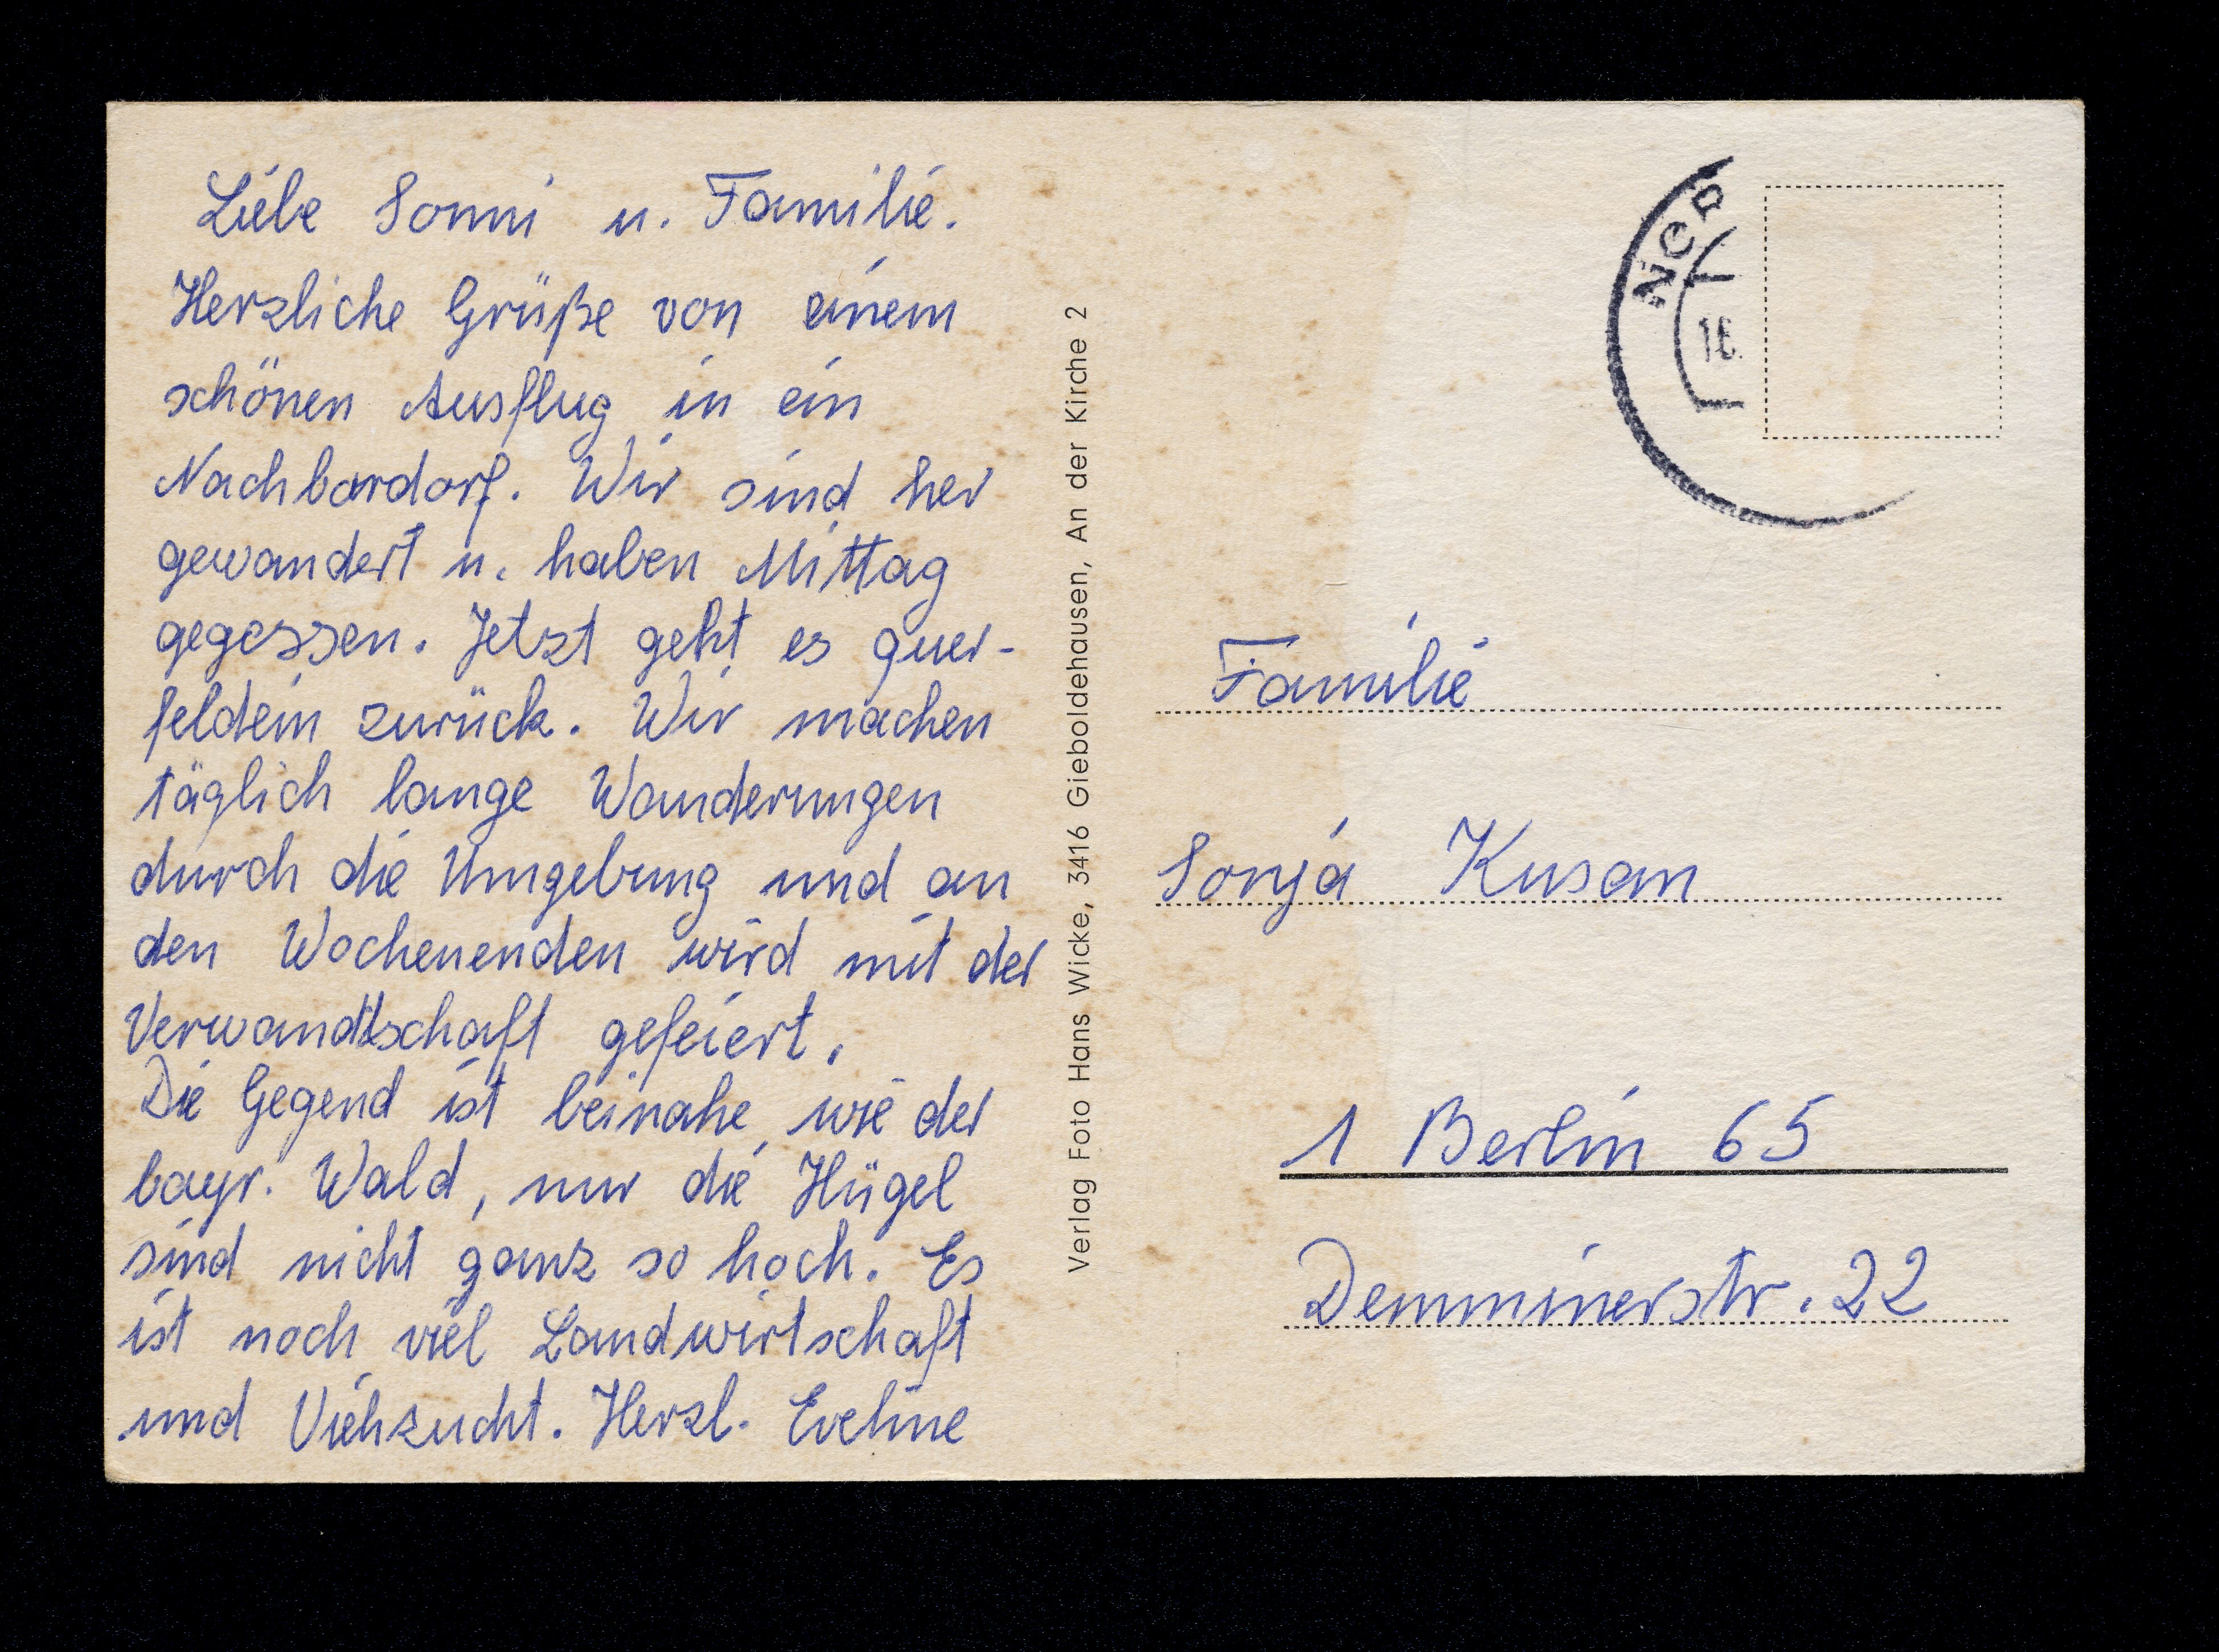 Liebe Sonni u. Familie.
Herzliche Grüße von einem
schönen Ausflug in ein
Nachbardorf. Wir sind her
gewandert u. haben Mittag
gegessen. Jetzt geht es quer-
feldein zurück. Wir machen
täglich lange Wanderungen
durch die Umgebung und an
den Wochenenden wird mit der
Verwandtschaft gefeiert.
Die Gegend ist beinahe wie der
bayr. Wald, nur die Hügel
sind nicht ganz so hoch. Es
ist noch viel Landwirtschaft
und Viehzucht. Herzl. Eveline
Verlag Foto Hans Wicke, 3416 Gieboldehausen, An der Kirche 2
Familie
Sonja Kusan
1 Berlin 65
Demminerstr. 22